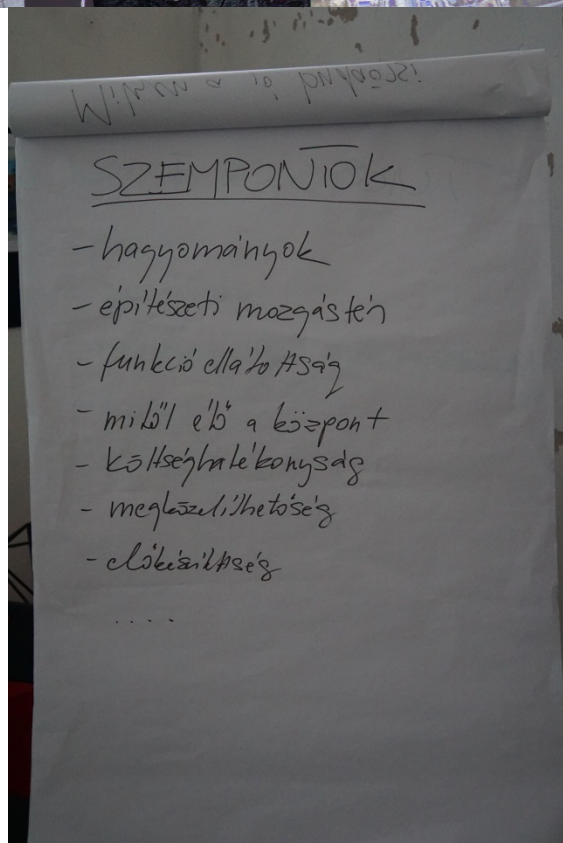 Milyen a jó budaörsi
SZEMPONTOK
- hagyományok
- építészeti mozgástér
- funkció ellátottság
- mitől élő a központ
- költséghatékonyság
- megközelíthetőség
- előkészítettség
....